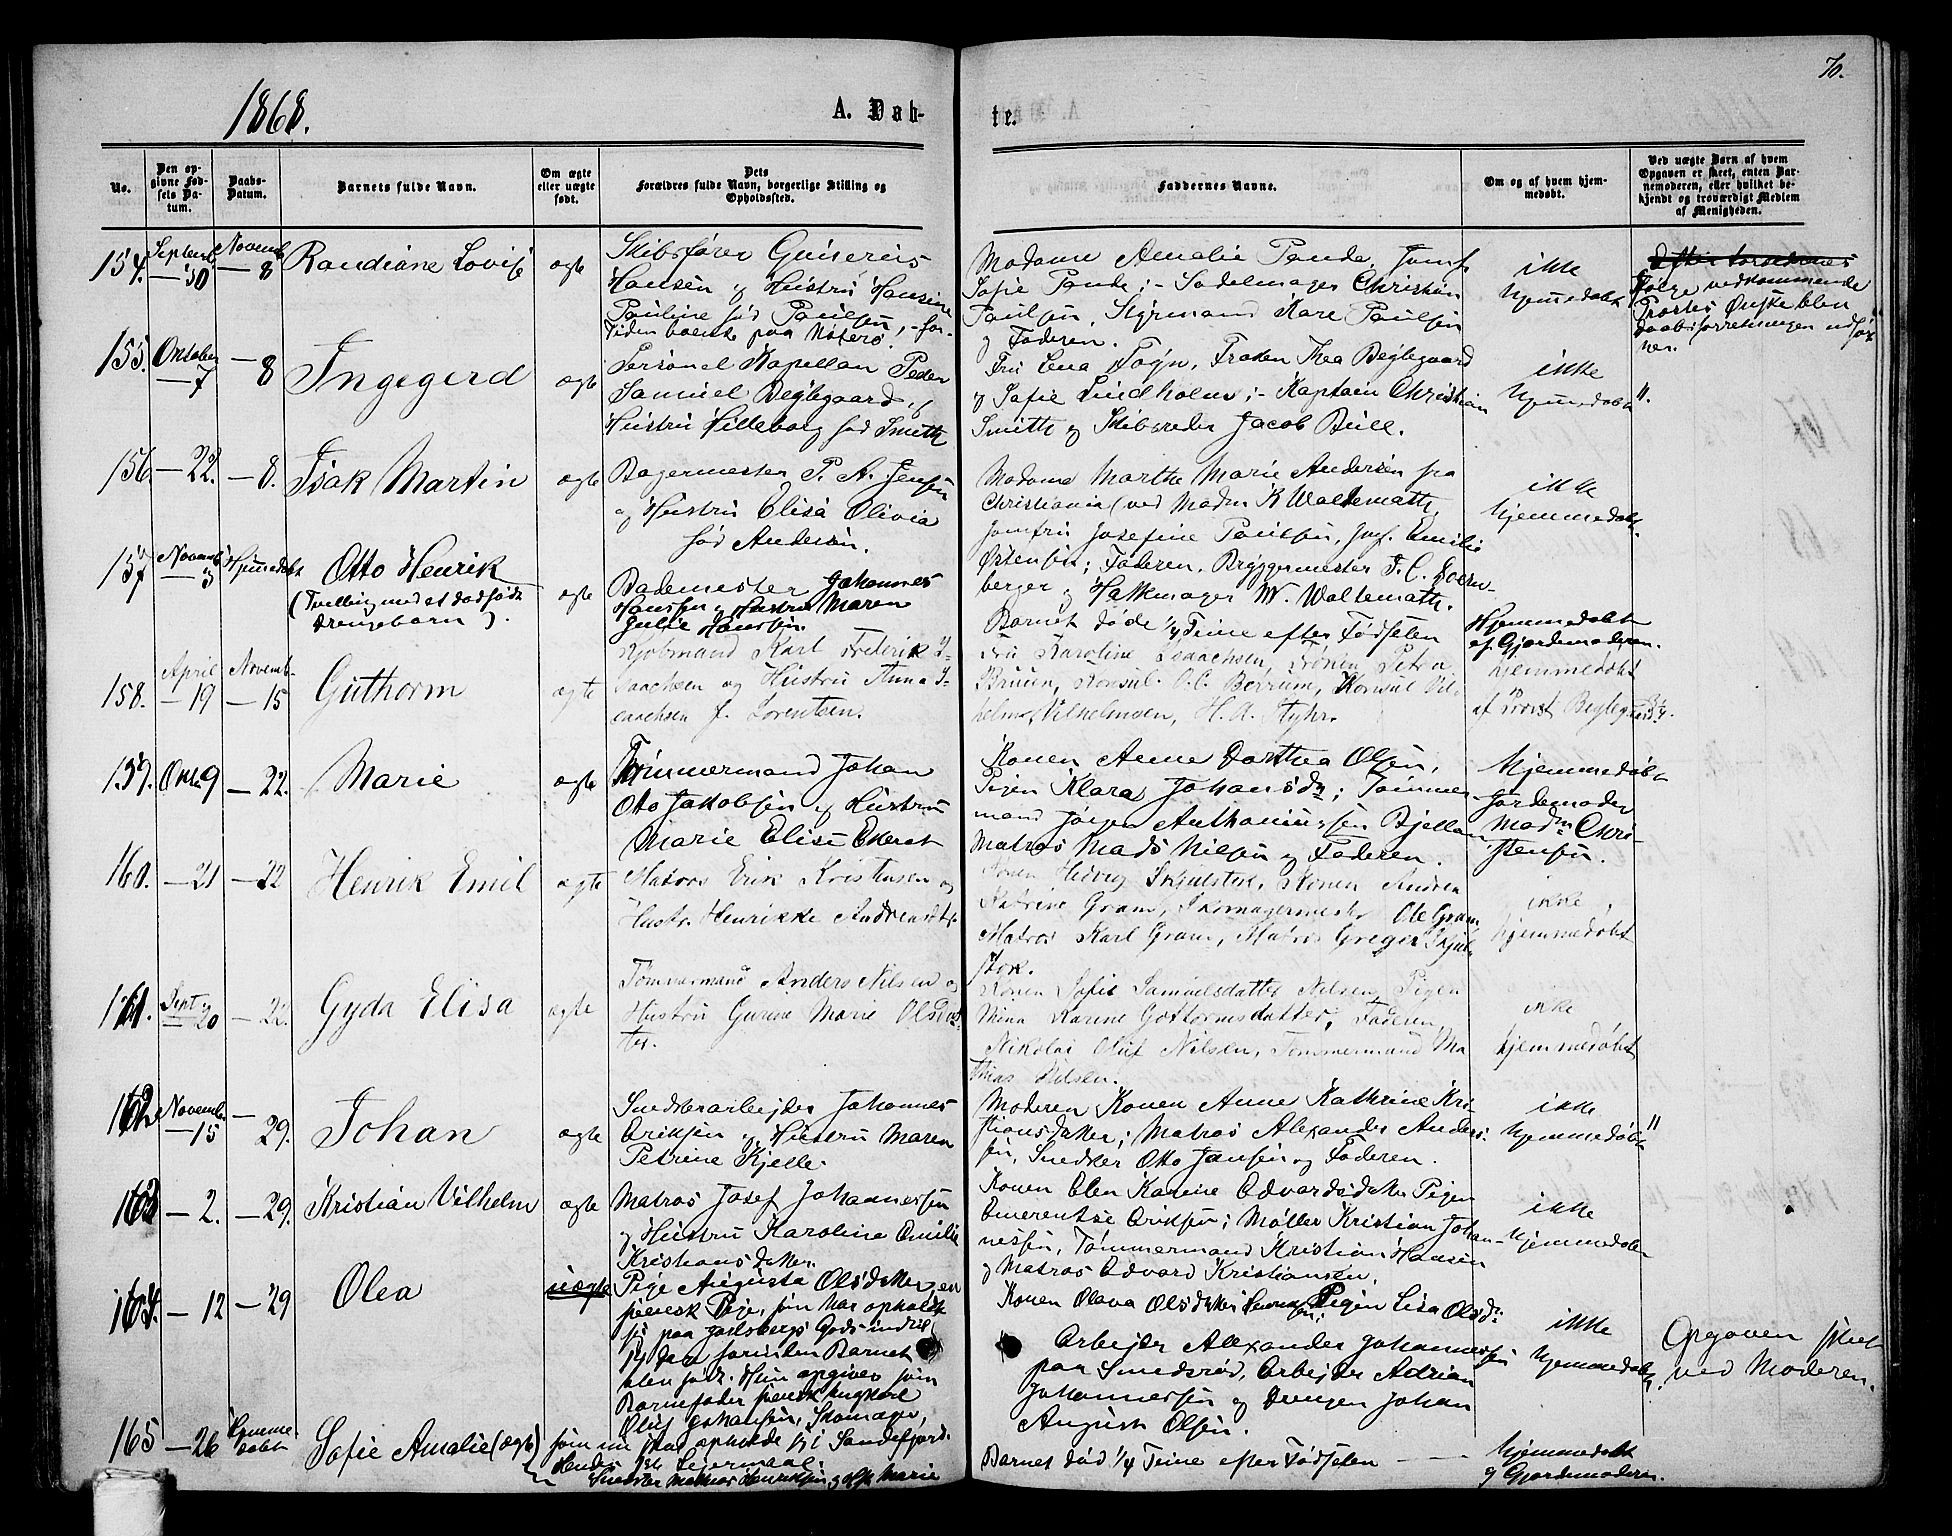 70.
1868.
A. Døb-
te.
No.
Den op-
givne Fød-
sels Da-
tum.
Daabs-
Datum.
Barnets fulde Navn.
Om ægte
eller uægte
født.
Dets
Forældres fulde Navn, borgerlige Stilling og
Opholdssted.
Faddernes Navne.
Om og af hvem hjem-
medøbt.
Ved uægte Børn af hvem
Opgaven er skeet, enten Bar-
nemoderen, eller hvilket be-
kjendt og troværdigt Medlem
af Menigheden.
154.
Septemb
— 30
Novemb
— 8
Randiane Lovise
ægte
Skibsfører Gunerius
Hansen og Hustru Hansine
Pauline fød Paulsen, — for-
Tiden boende paa Nøterø.
Madame Amalie Pande, Jomf.
Sofie Pande; — Sadelmager Christian
Paulsen, Styrmand Kare Paulsen
og Faderen.
ikke
hjemmedøbt
Efter
Følge vedkommende
Prostes Ønske blev
daabsforretningen udfør
155.
Oktober
— 7
— 8
Ingegerd
ægte
Personel Kapellan Peder
Samuel Bøgtegaard og
Hustru Hilleborg fød Smith
Fru Lena Fogn, Frøken Thea Bøgtegaard
og Sofie Lindholm; — Kaptein Christian
Smith og Skibsreder Jacob Bull.
ikke
hjemmedøbt
"
156.
— 22.
— 8.
Isak Martin
ægte
Bagermester P. A. Jensen
og Hustru Elisa Olivia
fød Andersen.
Madame Marthe Marie Andersen fra
Christiania (ved Madm K Waldemath,
Jomfru Josefine Paulsen, Jmf. Emilie
Østensen; Faderen, Bryggermester F. C.
berger og Hattemager W. Waltemath.
ikke
hjemmedøbt
157
Novemb
— 3
Hjemmedøbt
Otto Henrik
(Tvilling med et dødfødt
Drengebarn).
ægte
Bademester Johannes
Hanssen og Hustru Maren
Julie Hanssen.
Barnet døde 1/4 Time efter Fødselen
Hjemmedøbt
af Gjordemoderen.
158.
April
— 19
Novemb-
— 15
Guthorm
ægte
Kjøbmand Karl Frederik I-
saachsen og Hustru Anna I-
saachsen f. Lorentsen.
Fru Karoline Isaachsen, Frøken Petra
Bruun, Konsul O. C. Berrum, Konsul Vil-
helm Vilhelmsen, H. A. Styhr.
hjemmedøbt
af Provst
159.
Okt. 9
— 22.
Marie
ægte
Tømmermand Johan
Otto Jakobsen og Hustru
Marie Elise Ekerot
Konen Anne Dorthea Olsen,
Pigen Klara Johansdtr; Tømmer-
mand Jørgen Anthoniussen Bjelland
Matros Mads Nilsen og Faderen.
hjemmedøbt
Jordemoder
Madm Chri-
stensen.
160.
— 21
— 22
Henrik Emil
ægte
Matros Erik Kristensen og
Hustr. Henrikke
Konen Hedvig Skjulstok, Konen Andrea
Katrine Gram, Skomagermester Ole Gram
Matros Karl Gram, Matros Greger Skjul-
stok.
ikke
hjemmedøbt
161.
Sept
— 20
— 22.
Gyda Elisa
ægte
Tømmermand Anders Nilsen og
Hustru Gurine Marie Olsdat-
ter.
Konen Sofie Samuelsdatter Nilsen, Pigen
Mina Karine Gottormsdatter, Faderen,
Nikolai Oluf Nilsen, Tømmermand Ma-
thias Nilsen.
ikke
hjemmedøbt
162
November
— 15
— 29.
Johan
ægte
Snedkerarbejder Johannes
Eriksen og Hustru Maren
Petrine Kjelle.
Moderen Konen Anne Kathrine Kri-
stiansdatter; Matros Alexander Anders-
sen, Snedker Otto Jansen og Faderen.
ikke
hjemmedøbt
"
163
— 2.
— 29.
Kristian Vilhelm
ægte
Matros Josef Johannessen
og Hustru Karoline Emilie
Kristiansdatter.
Konen Elen Karine Edvardsdatter Pigen
Emerentse Eriksen; Møller Kristian Johan-
nessen, Tømmermand Kristian Hansen
og Matros Edvard Kristiansen.
ikke
hjemmedøbt
164.
— 12
— 29
Olea
uægte
Pige Augusta Olsdatter, en
svensk Pige, som har opholdt
sig paa Jarlsbergs Gods indtil
14 dage førinden Barnet
blev født. Hun opgiver som
Barnefader svensk Ungkarl
Oluf Johansen, Skomager,
som nu skal opholde sig i Sandefjord.
Hendes 1ste Lejermaal.
Konen Olava Olsdatter Svensen; Pigen Lisa Olsdr
Arbejder Alexander Johannessen
paa Smedsrød, Arbejder Adrian
Johannessen og Drengen Johan
August Olsen.
ikke
hjemmedøbt
Opgaven skeet
ved Moderen.
165
— 26
Hjemme
døbt
Sofie Amalie (ægte)
Snedker Mathias Henriksen og Marie
Barnet død 1/4 Time efter Fødselen — —
hjemmedøbt
af Gjordemoderen.